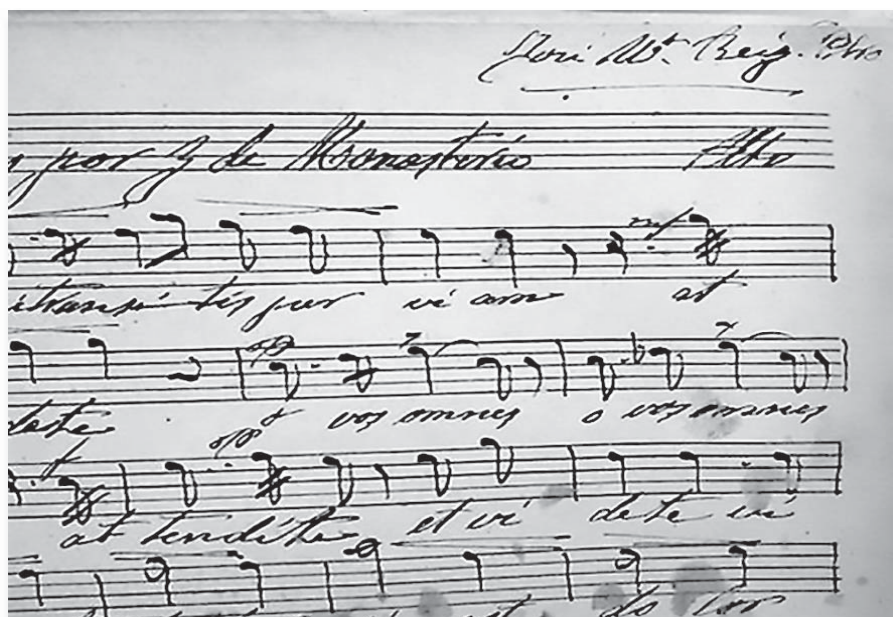 José Mª. Reig. Pbro
por J de Monasterio Alto
transitis per viam at
deste o vos omnes o vos omnes
at tendite et vi dete vi
do lor